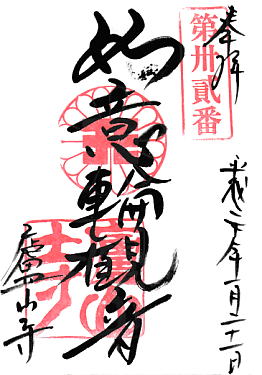 奉拝
第卅貳番
平成二十年一月二十一日
如意輪観音
廬山寺